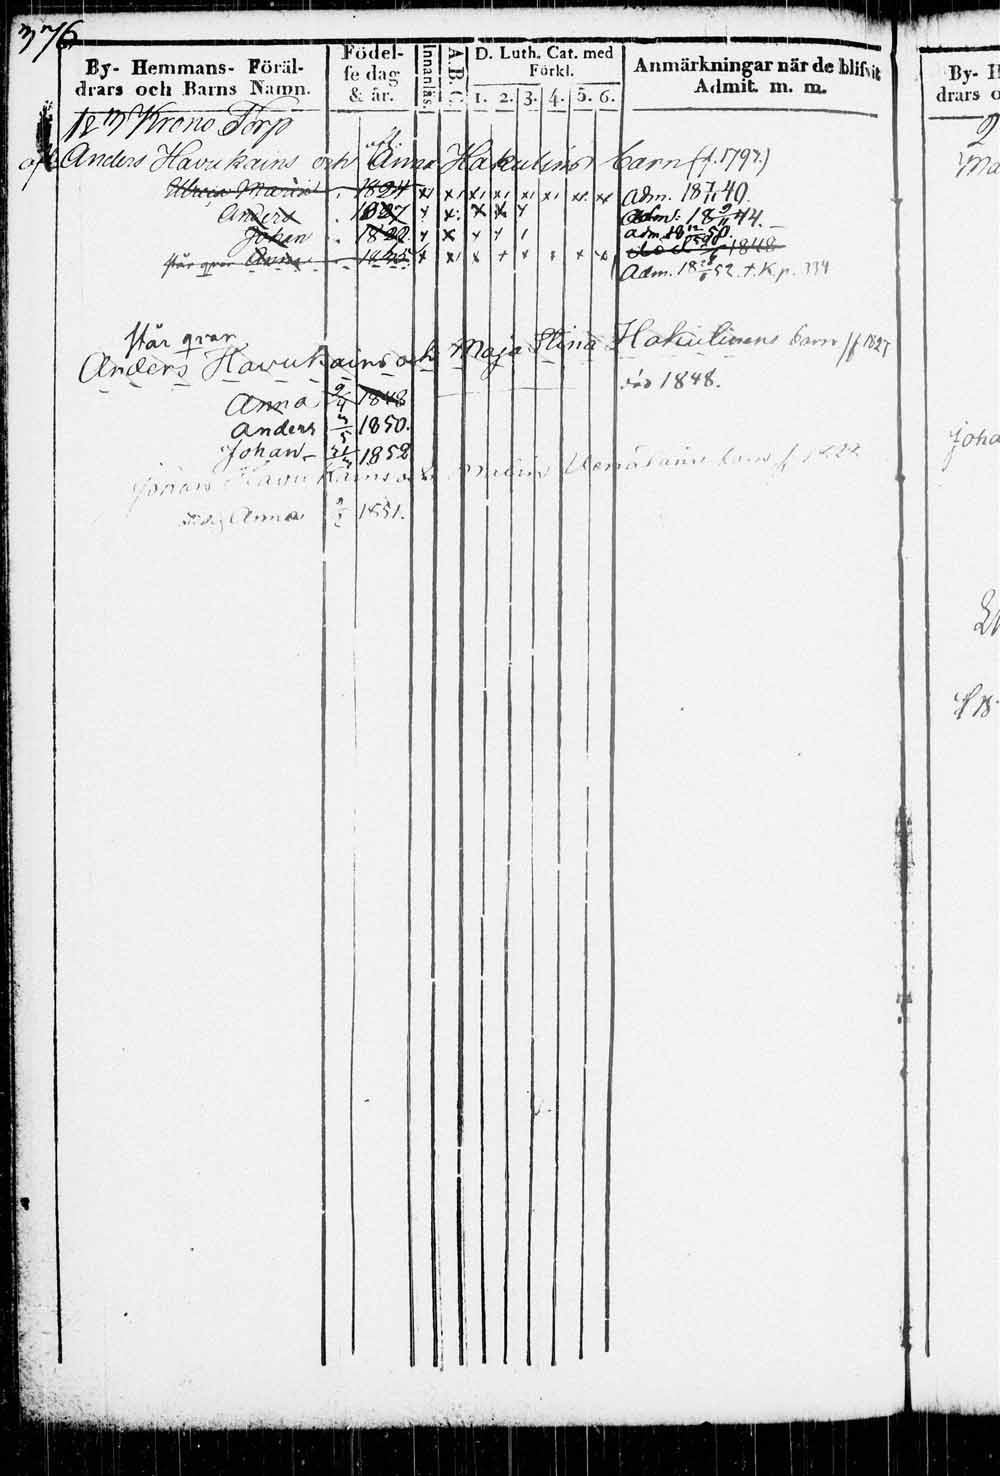 376
By- Hemmans- Föräl-
drars och Barns Namn.
Födel-
se dag
& år.
Innanläs.
A.B.C.
D. Luth. Cat. med
Förkl.
1. 2. 3. 4. 5. 6.
Anmärkningar när de blifvit
Admit. m. m.
Krono Torp
afl. Anders Havukains och afl. Anna Hakulins barn (f. 1797.)
Ulrica Maria 1824 x x x x x x x x Adm. 18 40.
Anders 1827 x x x x x Adm. 18 9/11 44.
Johan 1822 x x x x Adm. 18 50.
står qvar Anna 1835 x x x x x x x x 1848
Adm. 18 52. t. K. p. 334
står qvar
Anders Havukains och Maja Stina Hakulinens barn f 1827
död 1848.
Anna 9/4 1848
Anders 3/5 1850.
Johan 1852
Johan Havukains och barn f 1822
Anna 1851.
By- H
drars o
Ma
Joha
f 18